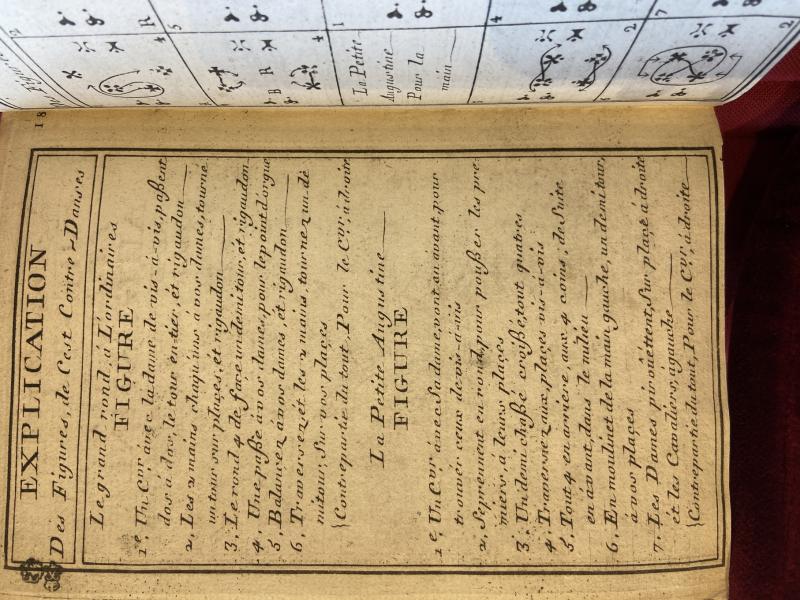 18
EXPLICATION
Des Figures, de C'est Contre-Danses
Le grand rond à L'ordinaires
FIGURE
1.e Un C.er avec la dame de vis-à-vis, passent
dos à dos, le tour en-tier, et rigaudon
2, Les 2 mains chaquuns à vos dames, tourné
un tour sur places, et rigaudon
3, Le rond 4 de face un demi tour, et rigaudon
4, Une passe à vos dames, pour le point d'orgue
5, Balancez à vos dames, et rigaudon
6, Traversez et les 2 mains, tournez un dé
mitour, Sur vos places
Contrepartie du tout, Pour le C.er, à droite
La Petite Augustine
FIGURE
1.e Un C.er avec Sa dame, vont en avant pour
trouver ceux de vis-à-vis
2, Se prennent en rond, pour pousser les pre
miers à leurs places
3, Un demi chassé croissé, tout quatres
4, Traversez aux places vis-à-vis
5, Tout 4 en arrière, aux 4 coins, de Suite
en avant, dans le milieu
6, En moulinet de la main gauche, un demi tour,
à vos places
7, Les Dames pirouettent, Sur place à droite
et les Cavaliers, agauche
Contrepartie du tout, Pour le C.er, à droite
La Petite
Augustine
Pour la
main